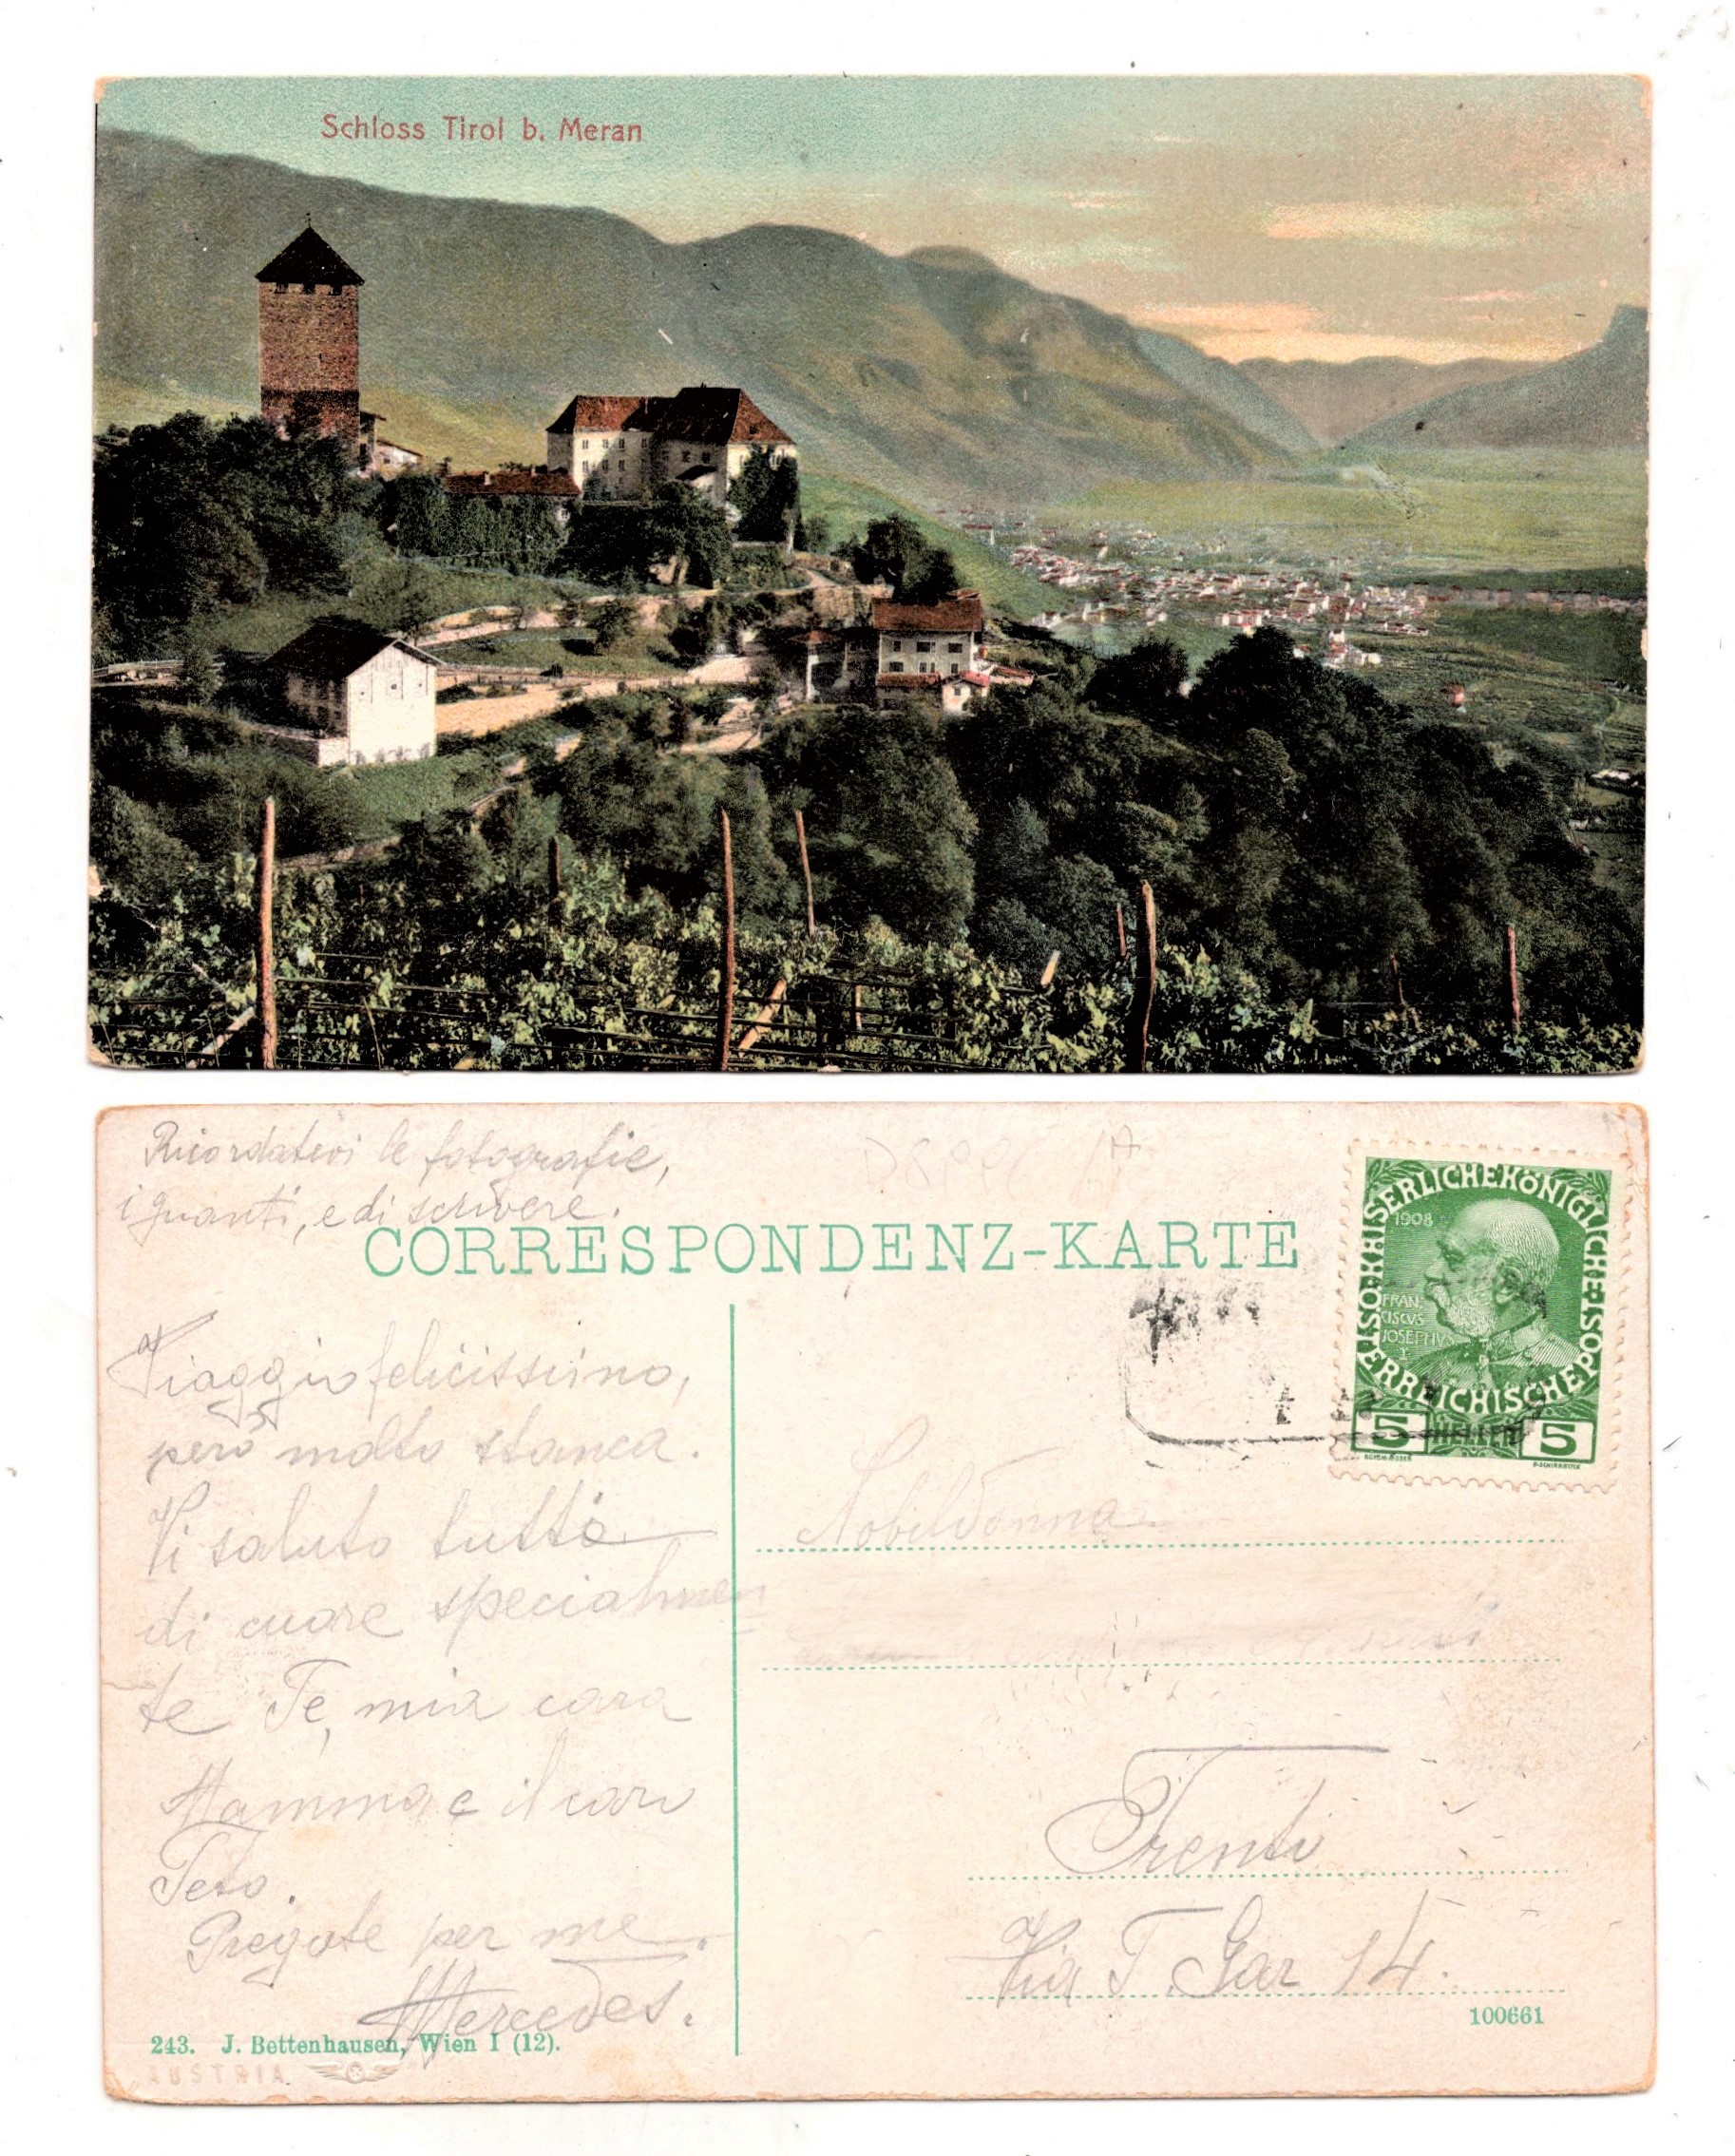 Schloss Tirol b. Meran
Ricordatevi le fotografie,
i guanti, e di scrivere.
CORRESPONDENZ-KARTE
KAISERLICHEKÖNIGLICHE ÖSTERREICHISCHE POST
1908
FRAN
CISCVS
IOSEPHVS
I
5 HELLER 5
Viaggio felicissimo,
però molto stanca.
Vi saluto tutti
di cuore specialmen
te Te, mia cara
Mamma e il caro
Pregate per me.
Mercedes.
Nobildonna
Trento
Via T. Gar 14.
100661
243. J. Bettenhausen, Wien I (12).
AUSTRIA